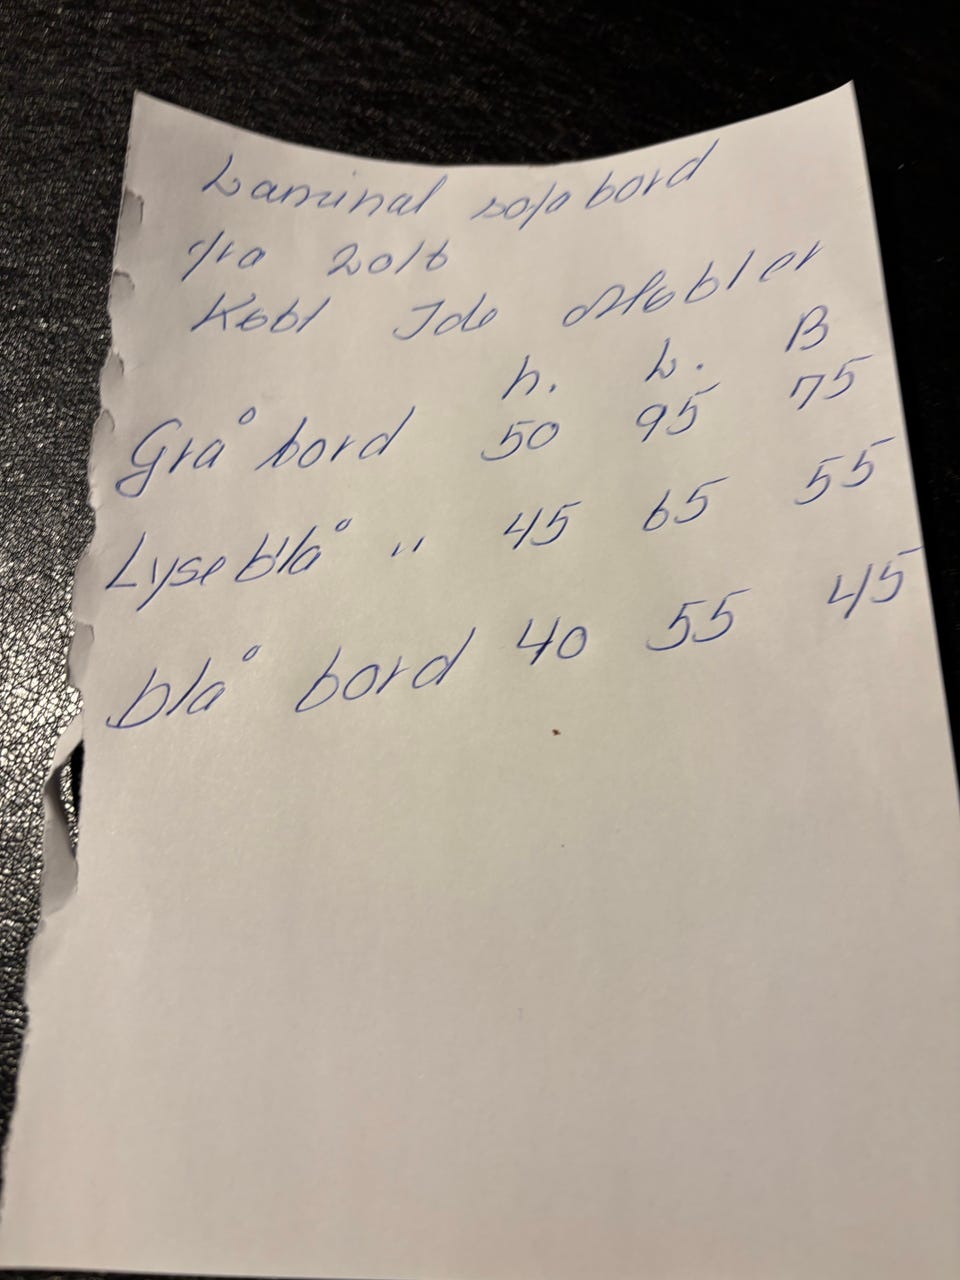 Laminat sofabord
fra 2016
Købt Ide Møbler
h. L. B
Grå bord 50 95 75
Lyseblå " 45 65 55
blå bord 40 55 45